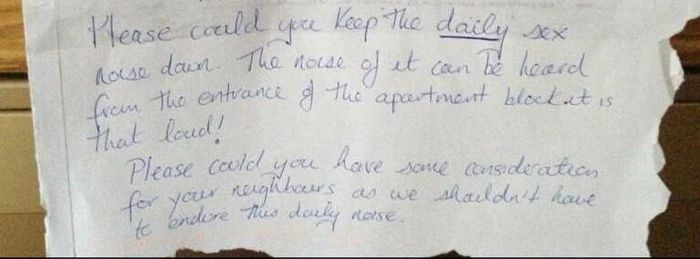 Please could you keep the daily sex
noise down. The noise of it can be heard
from the entrance of the apartment block it is
that loud!
Please could you have some consideration
for your neighbours as we shouldn't have
to endure this daily noise.